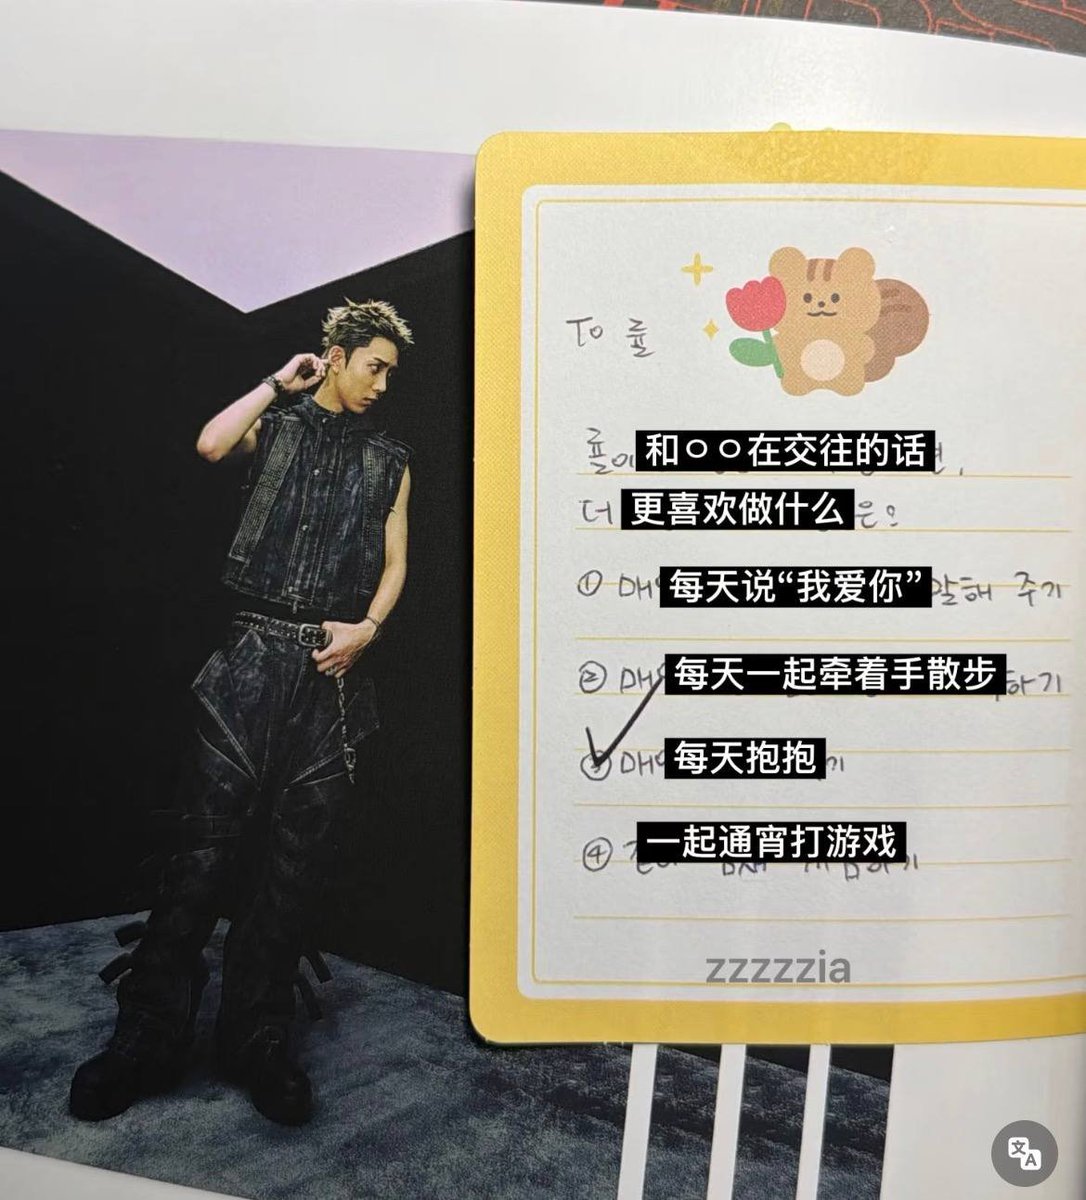 To 률
률이 和ㅇㅇ在交往的话
더 更喜欢做什么 은?
① 매 每天说“我爱你” 말해 주기
② 매 每天一起牵着手散步 하기
③ 매 每天抱抱 기
④ 一起通宵打游戏 하기
zzzzzzia